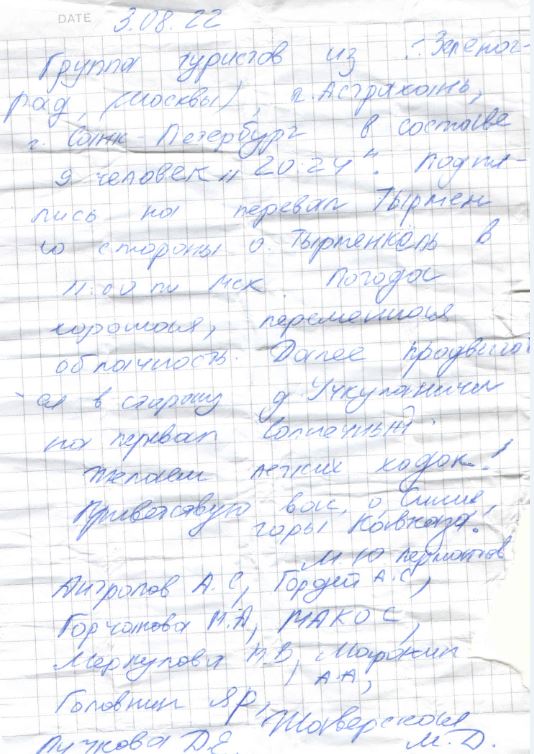 DATE 3.08.22
Группа туристов из г. Зеленог-
рад, (Москвы), г. Астрахань,
г. Санкт-Петербург в составе
9 человек "20.24". Подня-
лись на перевал Тырмен
со стороны о. Тырменколь в
11:00 по мск Погода
хорошая, переменная
облачность. Далее продвига
ся в сторону д. Учкуланичи
на перевал Солнечный.
Желаем легких ходок!
Приветствую вас, о, Синие,
горы Кавказа!
М Ю Лермонтов
Антропов А.С, Гордей А.С,
Горчакова М.А, МАКО С,
Меркулова Н.В,
А.А,
Головнин ЯР, Жаверская
Лучкова Д.Е М.Д.